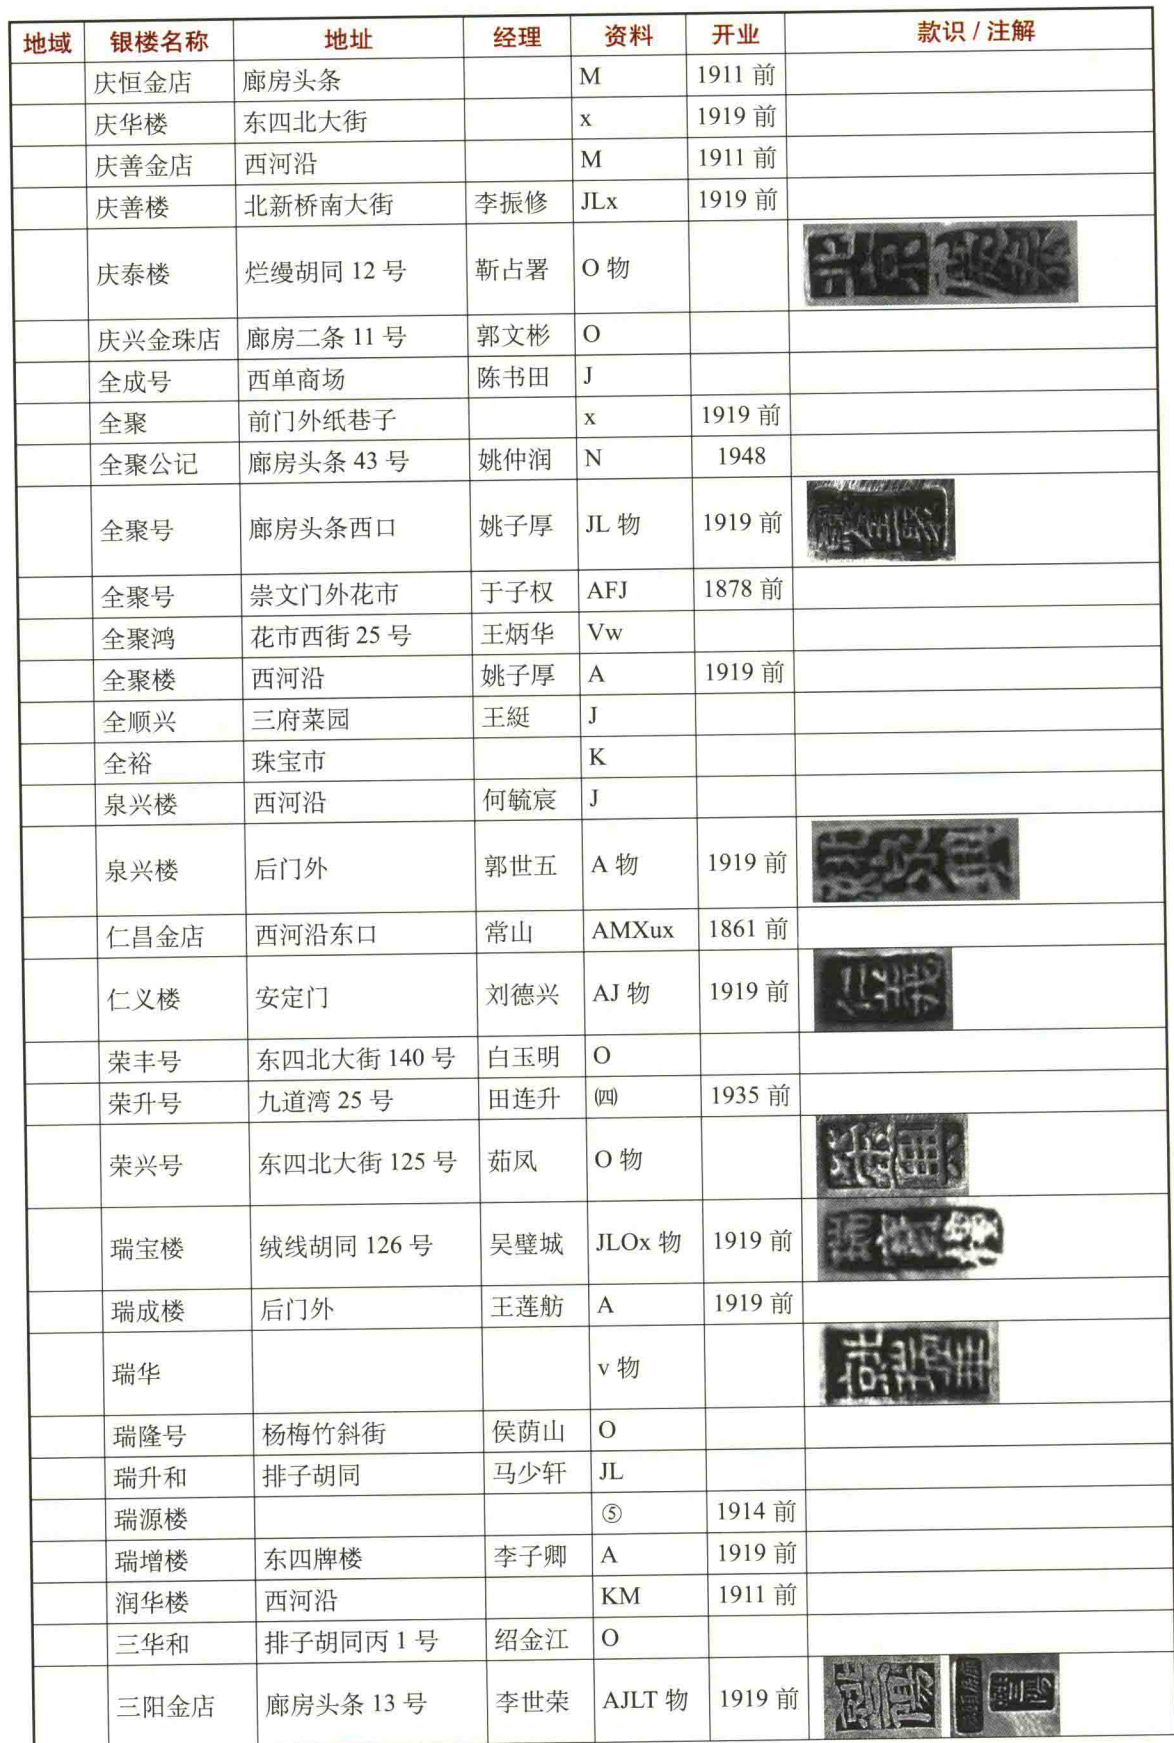 地域 银楼名称 地址 经理 资料 开业 款识 / 注解
庆恒金店 廊房头条 M 1911 前
庆华楼 东四北大街 x 1919 前
庆善金店 西河沿 M 1911 前
庆善楼 北新桥南大街 李振修 JLx 1919 前
庆泰楼 烂缦胡同 12 号 靳占署 O 物 北京 庆泰
庆兴金珠店 廊房二条 11 号 郭文彬 O
全成号 西单商场 陈书田 J
全聚 前门外纸巷子 x 1919 前
全聚公记 廊房头条 43 号 姚仲润 N 1948
全聚号 廊房头条西口 姚子厚 JL 物 1919 前
全聚号 崇文门外花市 于子权 AFJ 1878 前
全聚鸿 花市西街 25 号 王炳华 Vw
全聚楼 西河沿 姚子厚 A 1919 前
全顺兴 三府菜园 王綎 J
全裕 珠宝市 K
泉兴楼 西河沿 何毓宸 J
泉兴楼 后门外 郭世五 A 物 1919 前
仁昌金店 西河沿东口 常山 AMXux 1861 前
仁义楼 安定门 刘德兴 AJ 物 1919 前
荣丰号 东四北大街 140 号 白玉明 O
荣升号 九道湾 25 号 田连升 ㈣ 1935 前
荣兴号 东四北大街 125 号 茹凤 O 物
瑞宝楼 绒线胡同 126 号 吴璧城 JLOx 物 1919 前
瑞成楼 后门外 王莲舫 A 1919 前
瑞华 v 物
瑞隆号 杨梅竹斜街 侯荫山 O
瑞升和 排子胡同 马少轩 JL
瑞源楼 ⑤ 1914 前
瑞增楼 东四牌楼 李子卿 A 1919 前
润华楼 西河沿 KM 1911 前
三华和 排子胡同丙 1 号 绍金江 O
三阳金店 廊房头条 13 号 李世荣 AJLT 物 1919 前